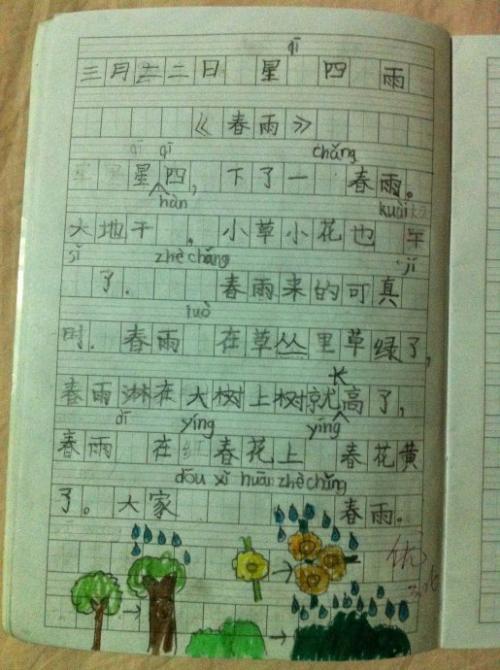 qī
三月二二日 星 四 雨
《春雨》
qī chǎng
星 四,下了一 春雨。
hàn kuài
大地干 。小草小花也 干
sǐ zhè chǎng jí
了. 春雨来的可真
luò
时.春雨 在草丛里草绿了,
长
春雨淋在大树上树就高了,
dī yíng yíng
春雨 在 春花上 春花黄
dōu xǐ huān zhè chǎng
了。大家 春雨。
优